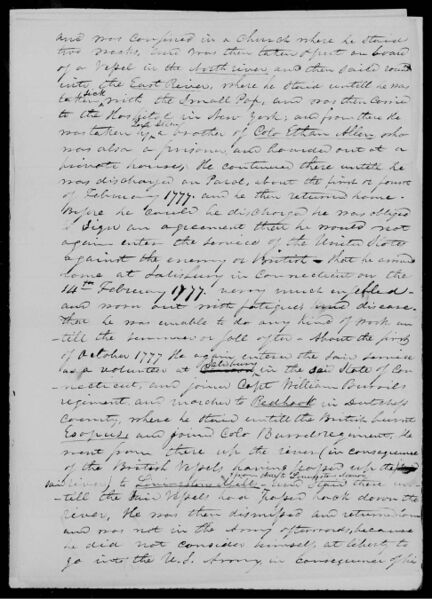 and was confined in a Church where he staid
two weeks. and was then taken & put on board
of a Vessel in the North river, and then sailed round
into the East River, where he staid untill he was
taken sick with the Small Pox, and was then carried
to the Hospital in New York; and from there he
was taken by a brother of Colo Ethan Allen, who
was also a prisoner, and boarded out at a
private house; He continued there untill he
was discharged on Parole, about the first or fourth
of February 1777. and he then returned home.
Before he could be discharged he was obliged
to Sign an agreement that he would not
again enter the service of the United States
against the enemy or British – that he arrived
home at Salisbury in Connecticut on the
14th February 1777. very much enfebled
and worn out with fatigues and disease.
that he was unable to do any kind of work un-
till the summer or fall after – About the first
of October 1777 He again entered the said service
as a volunteer at Salisbury in the said State of Con-
necticut, and joined Capt William Burralls
regiment, and marched to Redhook in Dutchess
County, where he staid untill the British burnt
Esopus and joined Colo Burrels regiment. He
went from there up the river (in consequence
of the British Vessels having passed up the
said river) to and staid there un-
till the said Vessels had passed back down the
river, He was then dismissed and returned home
and was not in the Army afterward, because
he did not consider himself at liberty to
go into the U.S. Army, in consequence of his